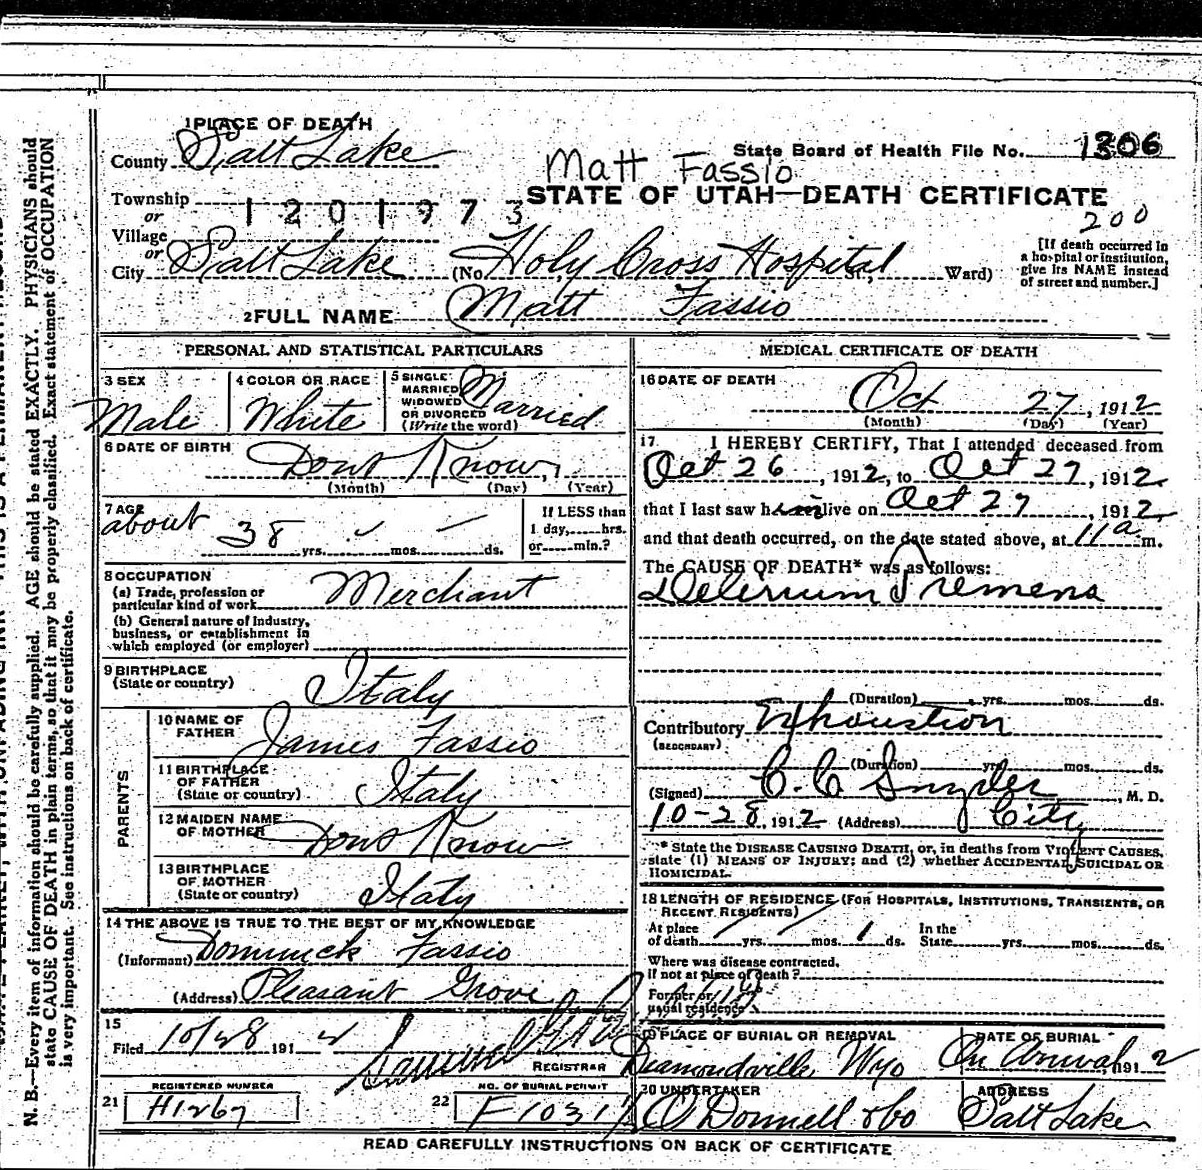 1 PLACE OF DEATH
County Salt Lake
State Board of Health File No. 1306
Matt Fassio
Township
1201973
STATE OF UTAH—DEATH CERTIFICATE
or
Village
200
or
City Salt Lake (No. Holy Cross Hospital St., Ward)
[If death occurred in
a hospital or institution,
give its NAME instead
of street and number.]
2 FULL NAME Matt Fassio
PERSONAL AND STATISTICAL PARTICULARS
3 SEX
Male
4 COLOR OR RACE
White
5 SINGLE
MARRIED
WIDOWED
OR DIVORCED
(Write the word)
Married
6 DATE OF BIRTH
Dont Know, 1
(Month) (Day) (Year)
7 AGE
about 38 yrs. mos. ds.
If LESS than
1 day, hrs.
or min.?
8 OCCUPATION
(a) Trade, profession or
particular kind of work Merchant
(b) General nature of industry,
business, or establishment in
which employed (or employer)
9 BIRTHPLACE
(State or country) Italy
PARENTS
10 NAME OF
FATHER James Fassio
11 BIRTHPLACE
OF FATHER
(State or country) Italy
12 MAIDEN NAME
OF MOTHER Dont Know
13 BIRTHPLACE
OF MOTHER
(State or country) Italy
14 THE ABOVE IS TRUE TO THE BEST OF MY KNOWLEDGE
(Informant) Dominick Fassio
(Address) Pleasant Grove
15
Filed 10/28 191 2
REGISTRAR
REGISTERED NUMBER
21 H1267
NO. OF BURIAL PERMIT
22 F1031
MEDICAL CERTIFICATE OF DEATH
16 DATE OF DEATH
Oct 27, 1912
(Month) (Day) (Year)
17 I HEREBY CERTIFY, That I attended deceased from
Oct 26, 1912, to Oct 27, 1912
that I last saw him alive on Oct 27, 1912
and that death occurred, on the date stated above, at 11 a m.
The CAUSE OF DEATH* was as follows:
Delerium Tremens
(Duration) yrs. mos. ds.
Contributory Exhaustion
(SECONDARY)
(Duration) yrs. mos. ds.
(Signed) C. C. Snyder, M. D.
10-28, 1912 (Address) City
* State the DISEASE CAUSING DEATH, or, in deaths from VIOLENT CAUSES,
state (1) MEANS OF INJURY; and (2) whether ACCIDENTAL, SUICIDAL OR
HOMICIDAL.
18 LENGTH OF RESIDENCE (FOR HOSPITALS, INSTITUTIONS, TRANSIENTS, OR
RECENT RESIDENTS)
At place
of death yrs. mos. 1 ds.
In the
State yrs. mos. ds.
Where was disease contracted,
if not at place of death?
Former or
usual residence
19 PLACE OF BURIAL OR REMOVAL
Diamondville Wyo
DATE OF BURIAL
On Arrival 191 2
20 UNDERTAKER
O'Donnell & Co
ADDRESS
Salt Lake
READ CAREFULLY INSTRUCTIONS ON BACK OF CERTIFICATE
N. B.—Every item of information should be carefully supplied. AGE should be stated EXACTLY. PHYSICIANS should
state CAUSE OF DEATH in plain terms, so that it may be properly classified. Exact statement of OCCUPATION
is very important. See instructions on back of certificate.